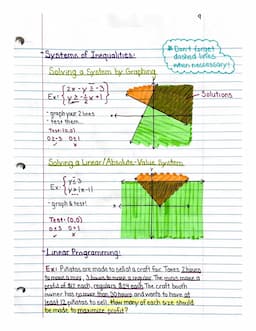 9
*Systems of Inequalities:
*Don't forget
dashed lines
when neccessary!
Solving a System by Graphing
Ex: { 2x - y ≥ -3
y ≥ -½x + 1
Solutions
- graph your 2 lines
- test them...
Test: (0,0)
0 ≥ -3 0 ≥ 1
✓ x
Solving a Linear/Absolute-Value System
Ex: { y ≤ 3
y > |x - 1|
- graph & test!
Test: (0,0)
0 ≤ 3 0 > 1
✓ x
*Linear Programming:
Ex: Piñatas are made to sell at a craft fair. Takes 2 hours
to make a mini, 3 hours to make a regular. The must make a
profit of $12 each, regulars $24 each. The craft booth
owner has no more than 30 hours and wants to have at
least 12 piñatas to sell. How many of each size should
be made to maximize profit?